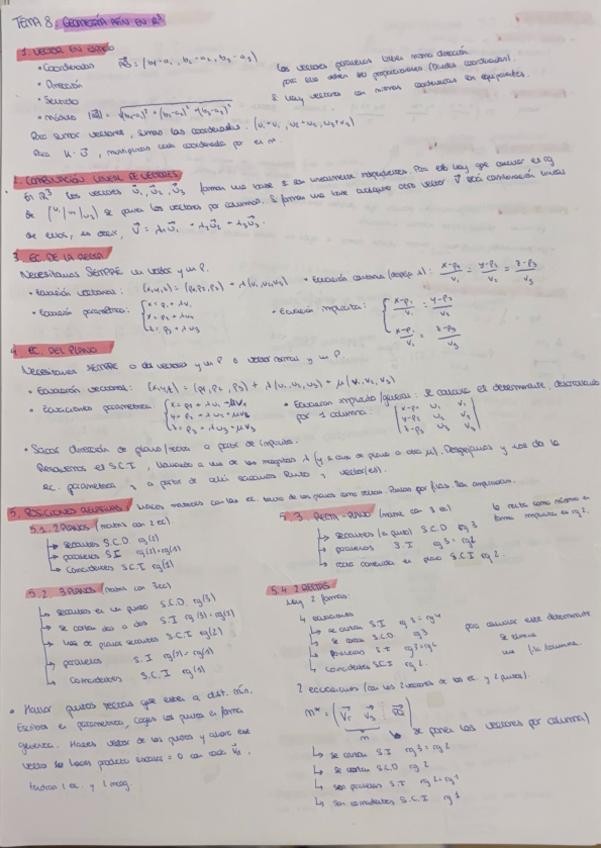 TEMA 8: GEOMETRÍA AFÍN EN R³
1. VECTOR EN ESPACIO
• Coordenadas AB = (b₁-a₁, b₂-a₂, b₃-a₃)
• Dirección
• Sentido
• Módulo |AB| = √(b₁-a₁)² + (b₂-a₂)² + (b₃-a₃)²
Los vectores paralelos tienen misma dirección
por ello deben ser proporcionales
Si hay vectores con mismas coordenadas son equipolentes.
Para sumar vectores, sumas las coordenadas. (u₁+v₁, u₂+v₂, u₃+v₃)
Para k · v, multiplicas cada coordenada por el nº.
2. COMBINACIÓN LINEAL DE VECTORES
En R³ los vectores u₁, u₂, u₃ forman una base si son linealmente independientes. Por ello hay que conocer el rg
de se ponen los vectores por columnas. Si forman una base cualquier otro vector v será combinación lineal
de ellos, es decir, v = λ₁u₁ + λ₂u₂ + λ₃u₃.
3. EC. DE LA RECTA
Necesitamos SIEMPRE un vector y un P.
• Ecuación vectorial: (x,y,z) = (p₁,p₂,p₃) + λ(v₁,v₂,v₃)
• Ecuación continua (despeje λ): x-p₁/v₁ = y-p₂/v₂ = z-p₃/v₃
• Ecuación paramétrica: { x = p₁ + λv₁
y = p₂ + λv₂
z = p₃ + λv₃
• Ecuación implícita:
4. EC. DEL PLANO
Necesitamos SIEMPRE o dos vectores y un P o vector normal y un P.
• Ecuación vectorial: (x,y,z) = (p₁, p₂, p₃) + λ(u₁, u₂, u₃) + μ(v₁, v₂, v₃)
• Ecuaciones paramétricas: { x = p₁ + λu₁ + μv₁
y = p₂ + λu₂ + μv₂
z = p₃ + λu₃ + μv₃
• Ecuación implícita/general: se calcula el determinante,
por 1 columna: | x-p₁ u₁ v₁
y-p₂ u₂ v₂
z-p₃ u₃ v₃ |
• Sacar dirección de plano/recta a partir de implícita.
Resolvemos el S.C.I, llamando a una de las incógnitas λ (y si es de plano a otra μ). Despejamos y nos da la
ec. paramétrica y a partir de allí sacamos Punto y vector(es).
5. POSICIONES RELATIVAS
5.1. 2 PLANOS (matriz con 2 ec)
↳ secantes S.C.I. rg(2)
↳ paralelos S.I rg(2)≠rg(1)
↳ coincidentes S.C.I rg(1)
5.2. 3 PLANOS (matriz con 3 ec)
↳ secantes en un punto S.C.D. rg(3)
↳ se cortan dos a dos S.I rg(3)≠rg(2)
↳ haz de planos secantes S.C.I rg(2)
↳ paralelos S.I rg(2)≠rg(1)
↳ coincidentes S.C.I rg(1)
5.3. RECTA-PLANO (matriz con 3 ec)
↳ secantes (a punto) S.C.D rg 3
↳ paralelos S.I rg 3≠rg2
↳ recta contenida en plano S.C.I rg 2.
la recta como mínimo en
forma implícita es rg 2.
5.4. 2 RECTAS
Hay 2 formas:
4 ecuaciones
↳ se cruzan S.I rg 3≠rg 4
↳ se cortan S.C.D. rg 3
↳ paralelas S.I rg3≠rg2
↳ coincidentes S.C.I rg 2.
para conocer este determinante
se elimina
una fila/columna.
2 ecuaciones (con los 2 vectores de las ec. y 2 puntos).
M* = (Vr Vs PQ)
M
↳ se ponen los vectores por columna)
↳ se cruzan S.I rg 3≠rg 2
↳ se cortan S.C.D rg 2
↳ son paralelas S.I rg 2≠rg1
↳ son coincidentes S.C.I rg 1
• Hallar puntos rectas que estén a dist. mín.
Escribes en paramétrica, coges los puntos en forma
genérica. Haces vector de los puntos y ahora ese
vector lo haces producto escalar = 0 con cada
tendrás 1 ec. y 1 incog.